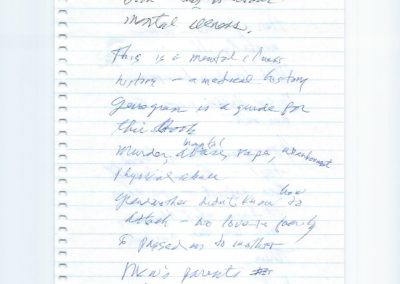 mental illness.
This is a mental illness
history – a medical history
Genogram is a guide for
this book
mental
murder, abuse, rape, abandonment
physical abuse
Grandmother didn't know how to
attach – no love in family
& passed on to mother
parents